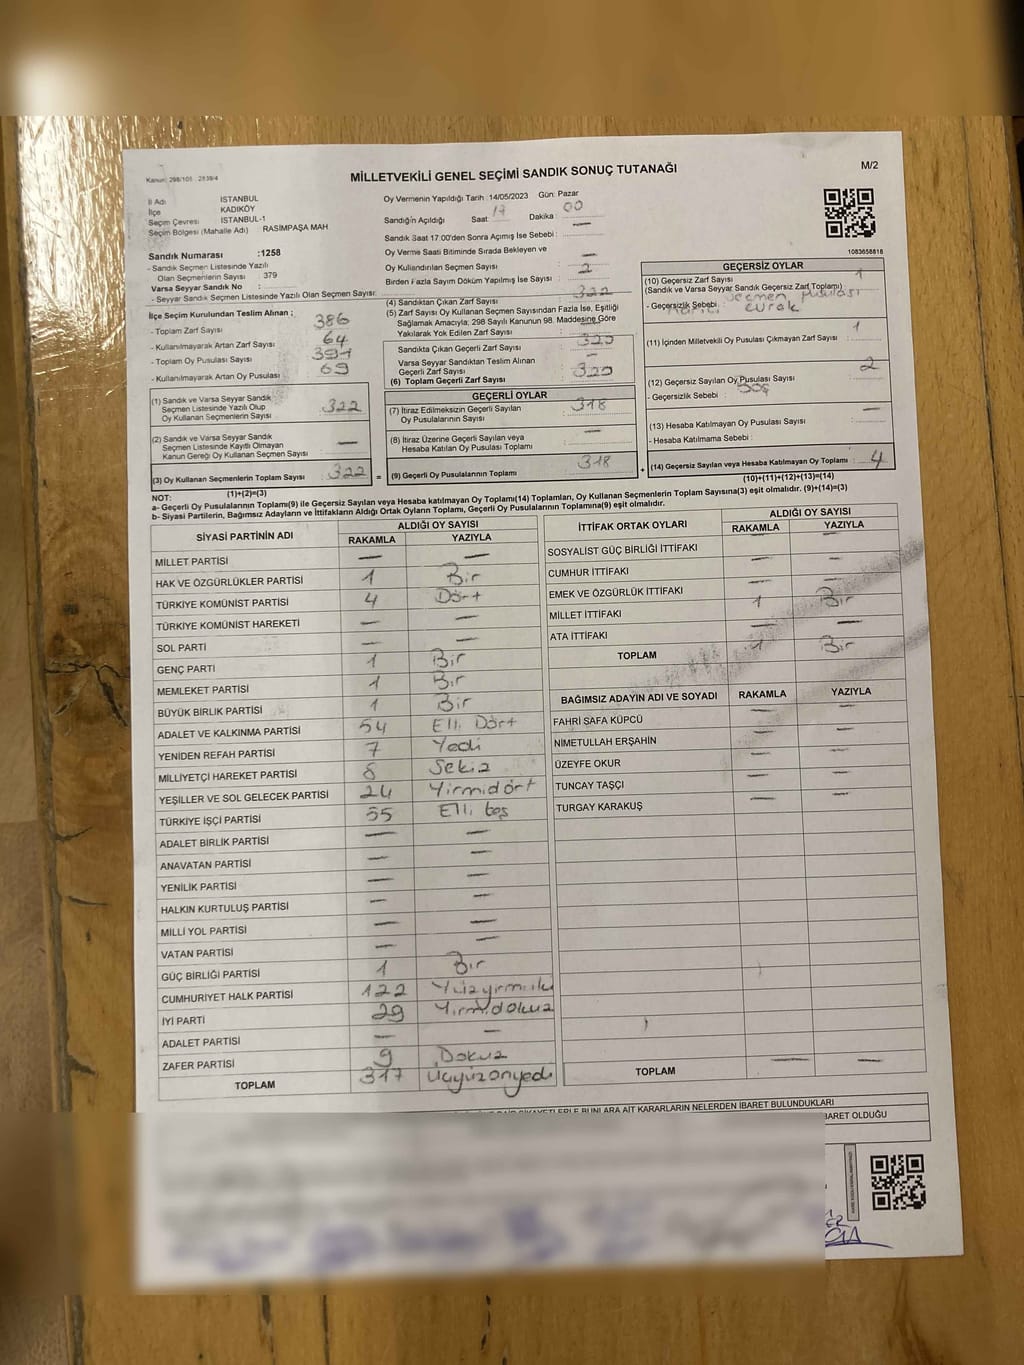 Kanun: 298/105 2839/4
MİLLETVEKİLİ GENEL SEÇİMİ SANDIK SONUÇ TUTANAĞI
M/2
İl Adı İSTANBUL
İlçe KADIKÖY
Seçim Çevresi İSTANBUL-1
Seçim Bölgesi (Mahalle Adı) RASİMPAŞA MAH
Oy Vermenin Yapıldığı Tarih :14/05/2023 Gün: Pazar
Sandığın Açıldığı Saat: 17 Dakika : 00
Sandık Saat 17:00'den Sonra Açımış İse Sebebi : —
Oy Verme Saati Bitiminde Sırada Bekleyen ve
Oy Kullandırılan Seçmen Sayısı : —
Birden Fazla Sayım Döküm Yapılmış İse Sayısı : 2
Sandık Numarası :1258
- Sandık Seçmen Listesinde Yazılı
Olan Seçmenlerin Sayısı : 379
Varsa Seyyar Sandık No :
- Seyyar Sandık Seçmen Listesinde Yazılı Olan Seçmen Sayısı:
İlçe Seçim Kurulundan Teslim Alınan ;
- Toplam Zarf Sayısı : 386
- Kullanılmayarak Artan Zarf Sayısı : 64
- Toplam Oy Pusulası Sayısı : 391
- Kullanılmayarak Artan Oy Pusulası : 69
(1) Sandık ve Varsa Seyyar Sandık
Seçmen Listesinde Yazılı Olup
Oy Kullanan Seçmenlerin Sayısı : 322
(2) Sandık ve Varsa Seyyar Sandık
Seçmen Listesinde Kayıtlı Olmayan
Kanun Gereği Oy Kullanan Seçmen Sayısı : —
(3) Oy Kullanan Seçmenlerin Toplam Sayısı : 322
(1)+(2)=(3)
(4) Sandıktan Çıkan Zarf Sayısı : 322
(5) Zarf Sayısı Oy Kullanan Seçmen Sayısından Fazla İse, Eşitliği
Sağlamak Amacıyla; 298 Sayılı Kanunun 98. Maddesine Göre
Yakılarak Yok Edilen Zarf Sayısı : —
Sandıkta Çıkan Geçerli Zarf Sayısı : 320
Varsa Seyyar Sandıktan Teslim Alınan
Geçerli Zarf Sayısı : —
(6) Toplam Geçerli Zarf Sayısı : 320
GEÇERLİ OYLAR
(7) İtiraz Edilmeksizin Geçerli Sayılan
Oy Pusulalarının Sayısı : 318
(8) İtiraz Üzerine Geçerli Sayılan veya
Hesaba Katılan Oy Pusulası Toplamı : —
= (9) Geçerli Oy Pusulalarının Toplamı : 318
1083658818
GEÇERSİZ OYLAR
(10) Geçersiz Zarf Sayısı : 1
(Sandık ve Varsa Seyyar Sandık Geçersiz Zarf Toplamı)
- Geçersizlik Sebebi : Seçmen pusulası
Harici evrak
(11) İçinden Milletvekili Oy Pusulası Çıkmayan Zarf Sayısı : 1
(12) Geçersiz Sayılan Oy Pusulası Sayısı : 2
- Geçersizlik Sebebi : Boş
(13) Hesaba Katılmayan Oy Pusulası Sayısı : —
- Hesaba Katılmama Sebebi :
+ (14) Geçersiz Sayılan veya Hesaba Katılmayan Oy Toplamı : 4
(10)+(11)+(12)+(13)=(14)
NOT:
a- Geçerli Oy Pusulalarının Toplamı(9) ile Geçersiz Sayılan veya Hesaba katılmayan Oy Toplamı(14) Toplamları, Oy Kullanan Seçmenlerin Toplam Sayısına(3) eşit olmalıdır. (9)+(14)=(3)
b- Siyasi Partilerin, Bağımsız Adayların ve İttifakların Aldığı Ortak Oyların Toplamı, Geçerli Oy Pusulalarının Toplamına(9) eşit olmalıdır.
SİYASİ PARTİNİN ADI ALDIĞI OY SAYISI
RAKAMLA YAZIYLA
MİLLET PARTİSİ — —
HAK VE ÖZGÜRLÜKLER PARTİSİ 1 Bir
TÜRKİYE KOMÜNİST PARTİSİ 4 Dört
TÜRKİYE KOMÜNİST HAREKETİ — —
SOL PARTİ — —
GENÇ PARTİ 1 Bir
MEMLEKET PARTİSİ 1 Bir
BÜYÜK BİRLİK PARTİSİ 1 Bir
ADALET VE KALKINMA PARTİSİ 54 Elli Dört
YENİDEN REFAH PARTİSİ 7 Yedi
MİLLİYETÇİ HAREKET PARTİSİ 8 Sekiz
YEŞİLLER VE SOL GELECEK PARTİSİ 24 Yirmidört
TÜRKİYE İŞÇİ PARTİSİ 55 Elli beş
ADALET BİRLİK PARTİSİ — —
ANAVATAN PARTİSİ — —
YENİLİK PARTİSİ — —
HALKIN KURTULUŞ PARTİSİ — —
MİLLİ YOL PARTİSİ — —
VATAN PARTİSİ — —
GÜÇ BİRLİĞİ PARTİSİ 1 Bir
CUMHURİYET HALK PARTİSİ 122 Yüzyirmiiki
İYİ PARTİ 29 Yirmidokuz
ADALET PARTİSİ — —
ZAFER PARTİSİ 9 Dokuz
TOPLAM 317 Üçyüzonyedi
İTTİFAK ORTAK OYLARI ALDIĞI OY SAYISI
RAKAMLA YAZIYLA
SOSYALİST GÜÇ BİRLİĞİ İTTİFAKI — —
CUMHUR İTTİFAKI — —
EMEK VE ÖZGÜRLÜK İTTİFAKI — —
MİLLET İTTİFAKI 1 Bir
ATA İTTİFAKI — —
TOPLAM 1 Bir
BAĞIMSIZ ADAYIN ADI VE SOYADI RAKAMLA YAZIYLA
FAHRİ SAFA KÜPCÜ — —
NİMETULLAH ERŞAHİN — —
ÜZEYFE OKUR — —
TUNCAY TAŞÇI — —
TURGAY KARAKUŞ — —
TOPLAM — —
BUNLARA AİT KARARLARIN NELERDEN İBARET BULUNDUKLARI
BARET OLDUĞU